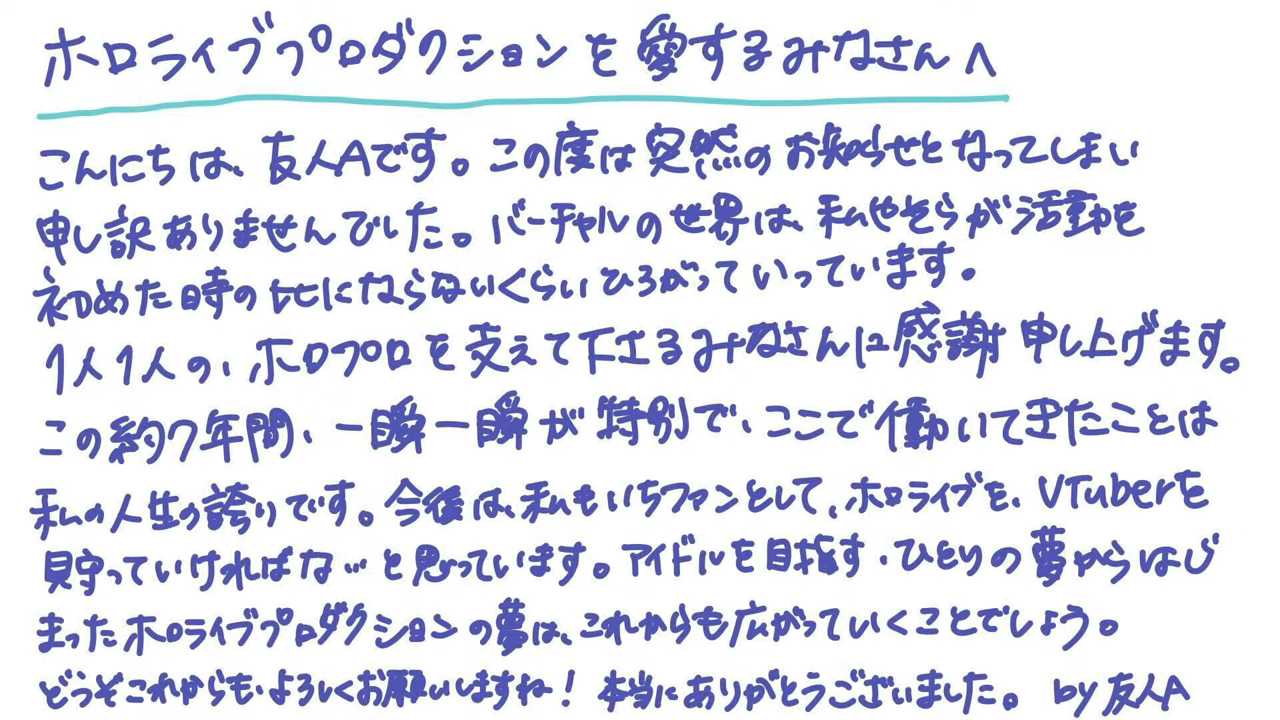 ホロライブプロダクションを愛するみなさんへ
こんにちは、友人Aです。この度は突然のお知らせとなってしまい
申し訳ありませんでした。バーチャルの世界は、私やそらが活動を
初めた時の比にならないくらいひろがっていっています。
1人1人の、ホロプロを支えて下さるみなさんに感謝申し上げます。
この約7年間、一瞬一瞬が特別で、ここで働いてきたことは
私の人生の誇りです。今後は、私もいちファンとして、ホロライブを、VTuberを
見守っていければな…と思っています。アイドルを目指す・ひとりの夢からはじ
まったホロライブプロダクションの夢は、これからも広がっていくことでしょう。
どうぞこれからも、よろしくお願いしますね!本当にありがとうございました。by友人A